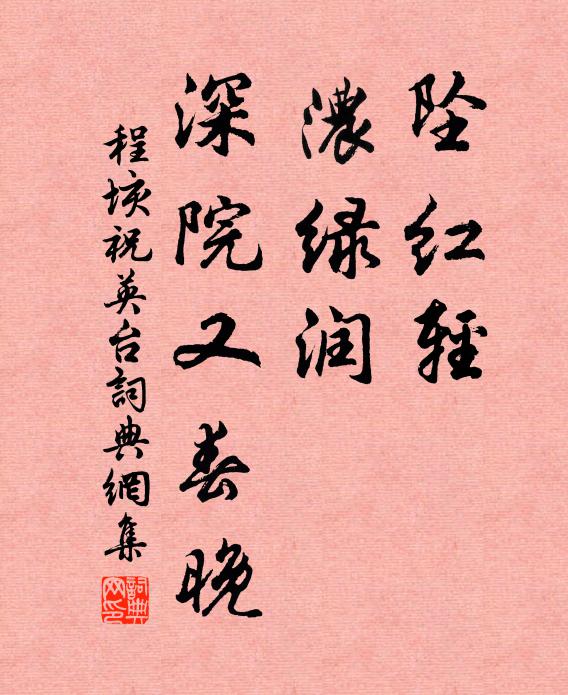 坠红轻
濃绿润
深院又春晚
程垓祝英台詞典網集
詞典
网印